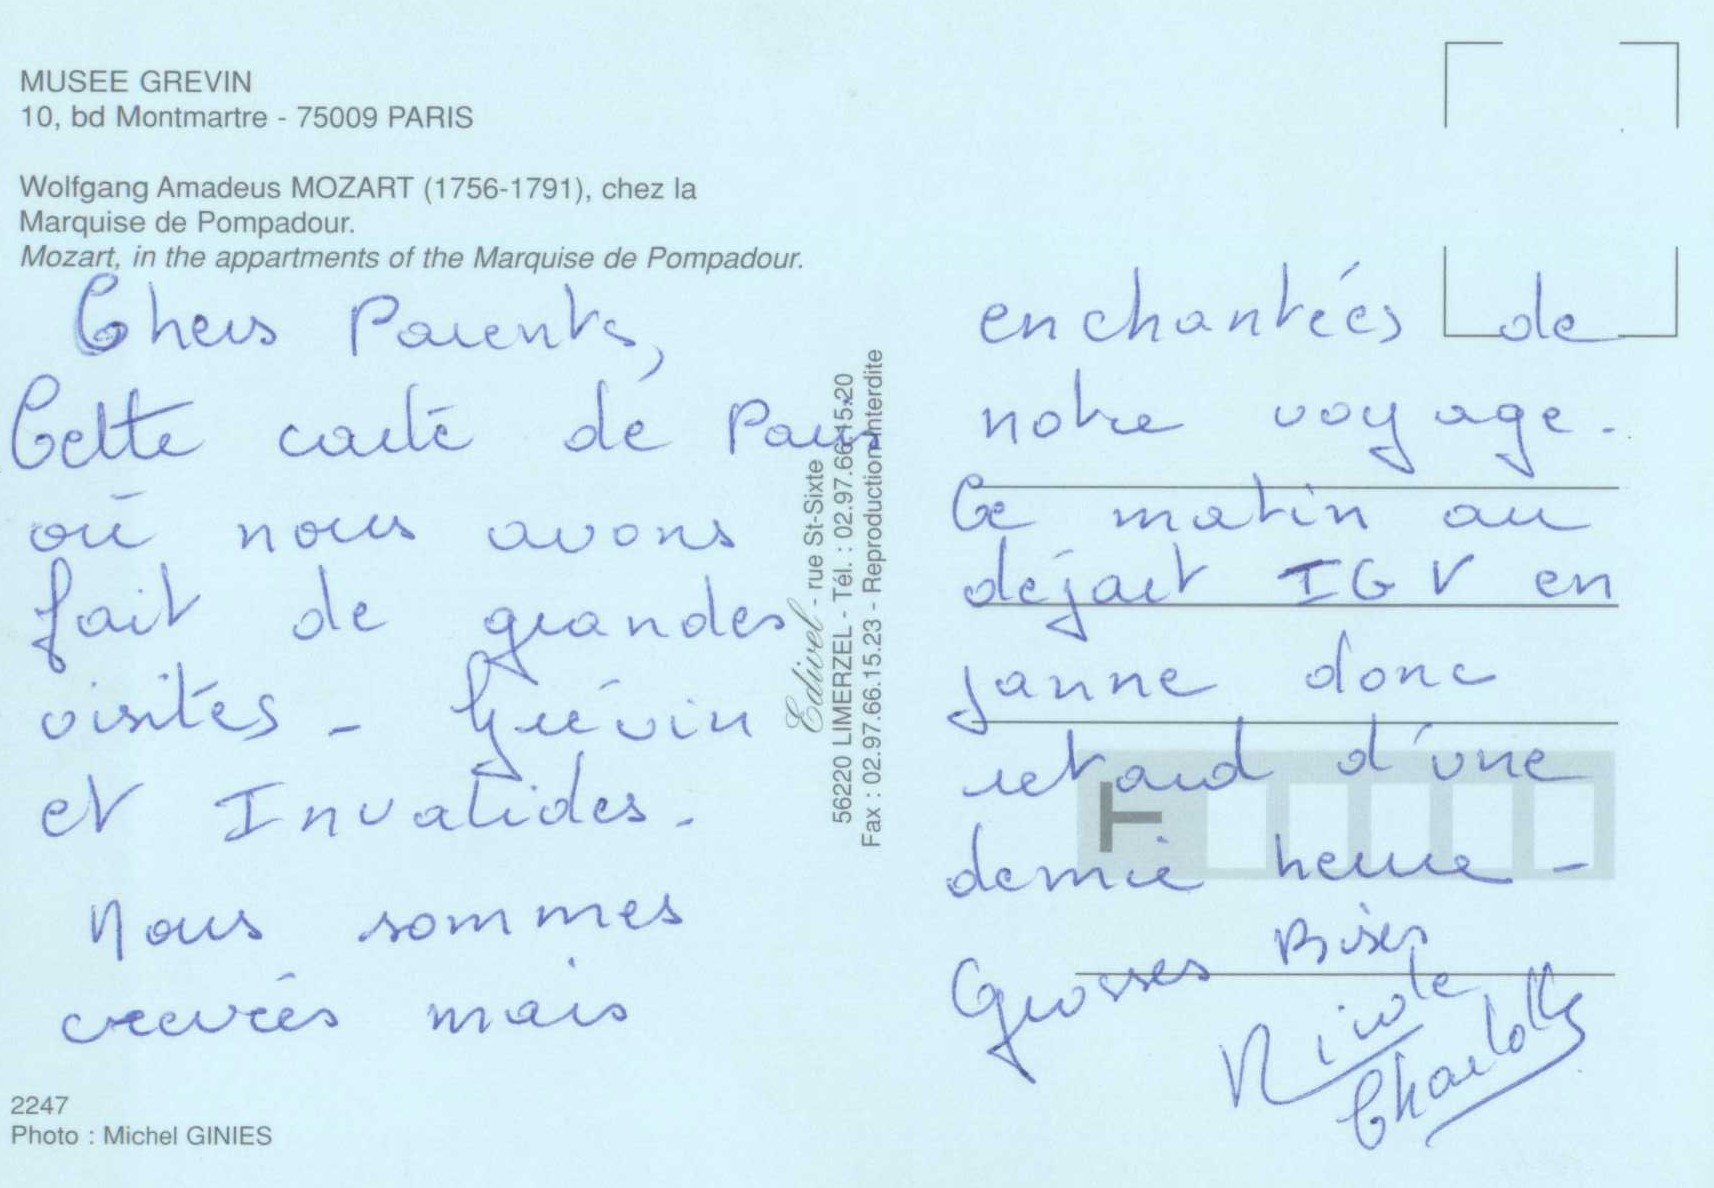 MUSEE GREVIN
10, bd Montmartre - 75009 PARIS
Wolfgang Amadeus MOZART (1756-1791), chez la
Marquise de Pompadour.
Mozart, in the appartments of the Marquise de Pompadour.
Chers Parents,
Cette carte de Paris
où nous avons
fait de grandes
visites - Grévin
et Invalides.
Nous sommes
crevées mais
2247
Photo : Michel GINIES
Edivel - rue St-Sixte
56220 LIMERZEL - Tél. : 02.97.66.15.20
Fax : 02.97.66.15.23 - Reproduction Interdite
enchantées de
notre voyage.
Ce matin au
départ TGV en
panne donc
retard d'une
demie heure -
Grosses Bises
Nicole
Charlotte
T